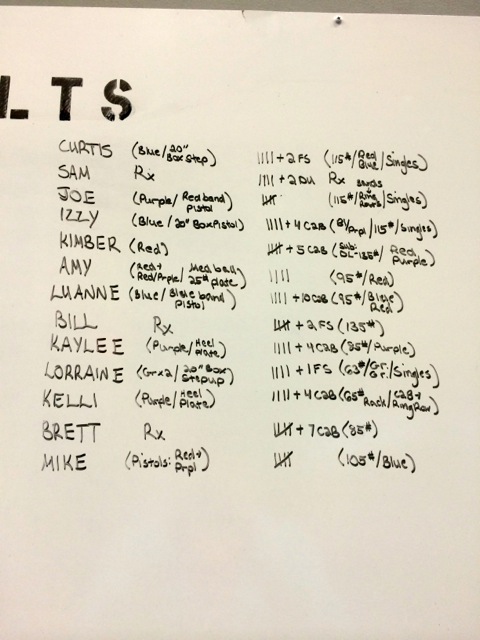 LTS
CURTIS (Blue/20" Box Step) |||| + 2 FS (115#/Red/Blue/Singles)
SAM Rx |||| + 2 DU Rx
JOE (Purple/Red band Pistol) (115#/Ring Rows/Singles)
IZZY (Blue/20" Box Pistol) |||| + 4 C2B (115#/Singles)
KIMBER (Red) + 5 C2B (Sub: DL-135#/Red Purple)
AMY (Red+ Red/Prple/Med ball/25# plate) |||| (95#/Red)
LUANNE (Blue/Blue band Pistol) |||| + 10 C2B (95#/Blue/Red)
BILL Rx + 2 FS (135#)
KAYLEE (Purple/Heel Plate) |||| + 4 C2B (85#/Purple)
LORRAINE (Gr x 2/20" Box Step up) |||| + 1 FS (63#/Gr. Gr./Singles)
KELLI (Purple/Heel Plate) |||| + 4 C2B (65# Rack/C2B + Ring Row)
BRETT Rx + 7 C2B (85#)
MIKE (Pistols: Red + Prpl) (105#/Blue)